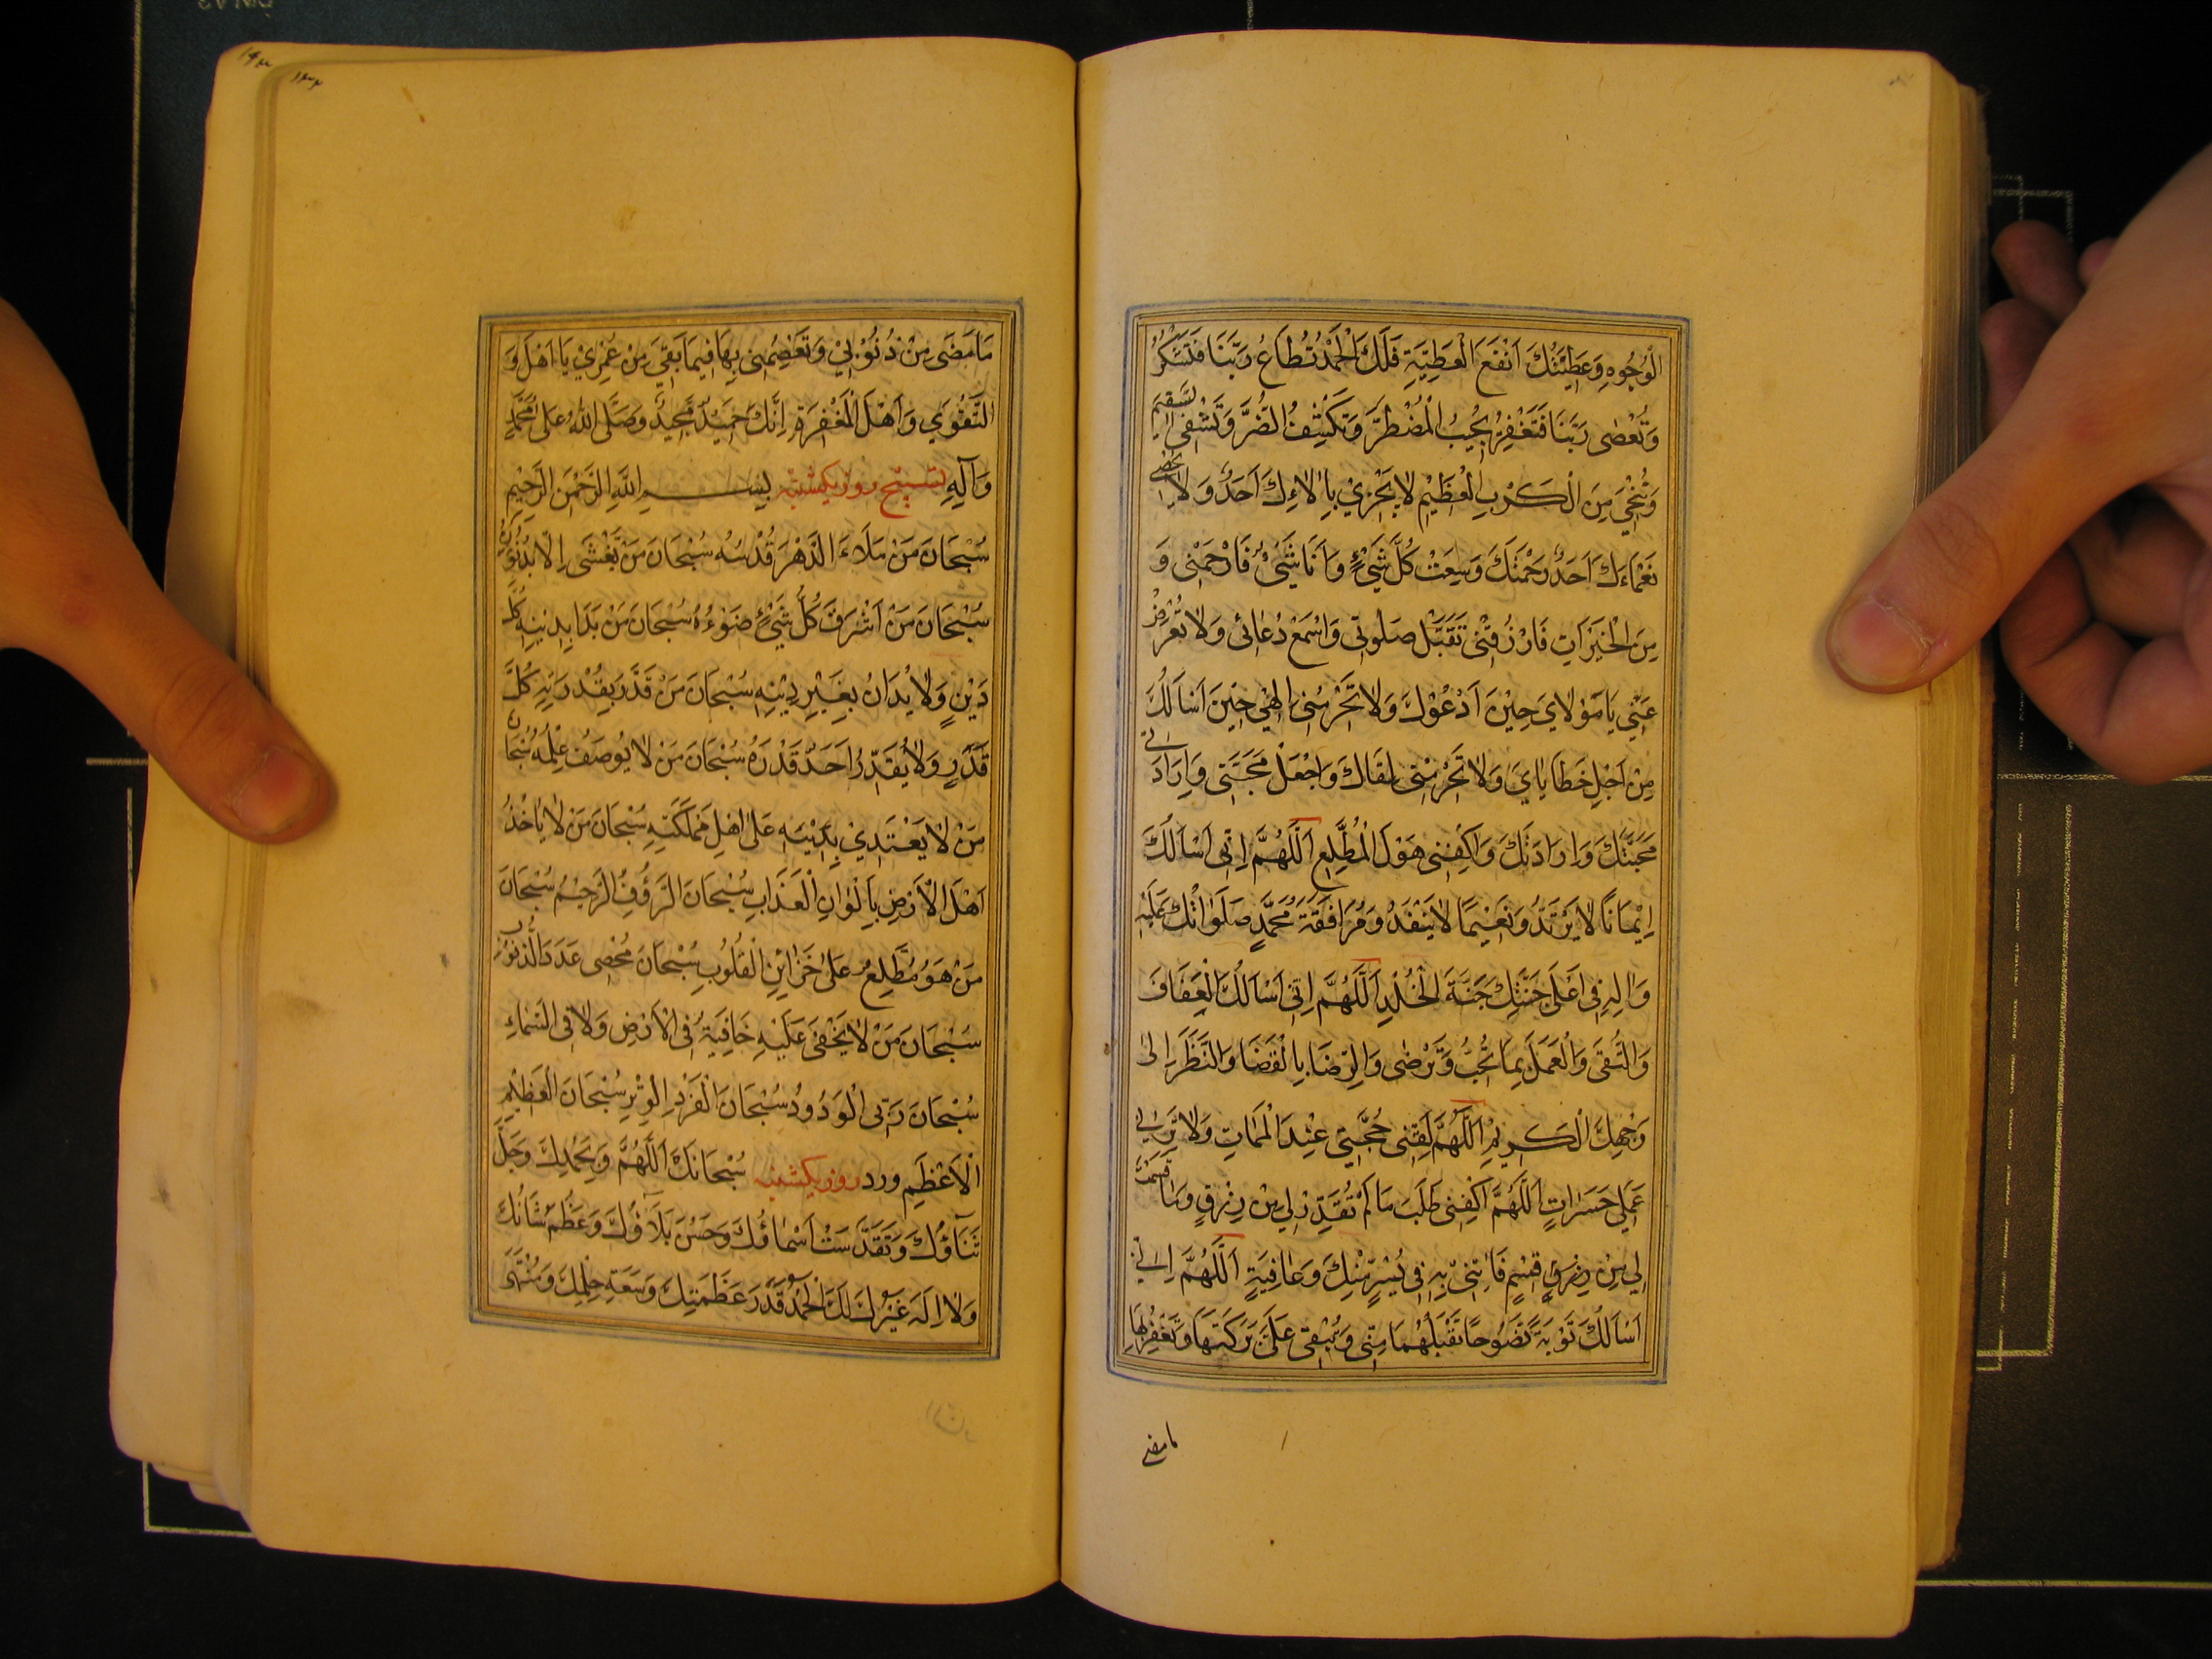 الْوُجُوهِ وَعَطِيَّتُكَ اَنْفَعَ الْعَطِيَّةِ فَلَكَ الْحَمْدُ تُطَاعُ رَبَّنَا فَتَشْكُرُ
وَتُعْصٰى رَبَّنَا فَتَغْفِرُ تُجِيبُ الْمُضْطَرَّ وَتَكْشِفُ الضُّرَّ وَتَشْفِى السَّقِيمَ
وَتُنْجِيْ مِنَ الْكَرْبِ الْعَظِيْمِ لَا يَجْزِيْ بِاٰلَاءِكَ اَحَدٌ وَلَا يُحْصِيْ
نَعْمَاءَكَ اَحَدٌ رَحْمَتَكَ وَسِعَتْ كُلَّ شَيْءٍ وَاَنَا شَيْءٌ فَارْحَمْنِى وَ
مِنَ الْخَيْرَاتِ فَارْزُقْنِى تَقَبَّلْ صَلٰوتِى وَاسْمَعْ دُعَائِى وَلَا تُعْرِضْ
عَنِّي يَا مَوْلَايَ حِيْنَ اَدْعُوْكَ وَلَا تَحْرِمْنِى اِلٰهِيْ حِيْنَ اَسْاَلُكَ
مِنْ اَجْلِ خَطَايَايَ وَلَا تَحْرِمْنِى لِقَاكَ وَاجْعَلْ مَحَبَّتِى وَاِرَادَتِى
مَحَبَّتَكَ وَاِرَادَتَكَ وَاكْفِنِى هَوْلَ الْمُطَّلَعِ اَللّٰهُمَّ اِنِّى اَسْاَلُكَ
اِيْمَانًا لَا يَرْتَدُّ وَنَعِيْمًا لَا يَنْفَدُ وَمُرَافَقَةَ مُحَمَّدٍ صَلَوٰاتُكَ عَلَيْهِ
وَاٰلِهِ فِى اَعْلَى جَنَّتِكَ جَنَّةَ الْخُلْدِ اَللّٰهُمَّ اِنِّى اَسْاَلُكَ الْعِفَافَ
وَالتُّقٰى وَالْعَمَلَ بِمَا تُحِبُّ وَتَرْضٰى وَالرِّضَا بِالْقَضَا وَالنَّظَرَ اِلٰى
وَجْهِكَ الْكَرِيْمِ اَللّٰهُمَّ لَقِّنِى حُجَّتِى عِنْدَ الْمَمَاتِ وَلَا تُرِنِى
عَمَلِي حَسَرَاتٍ اَللّٰهُمَّ اكْفِنِى طَلَبَ مَا لَمْ تُقَدِّرْ لِي مِنْ رِزْقٍ وَمَا قَسَمْتَ
لِي مِنْ رِزْقٍ قِسْمٍ فَاٰتِنِى بِهِ فِى يُسْرٍ مِّنْكَ وَعَافِيَةٍ اَللّٰهُمَّ اِنِّى
اَسْاَلُكَ تَوْبَةً نَّصُوحًا تَقْبَلُهُمَا مِنِّى وَتُبْقِى عَلَيَّ بَرَكَتَهَا وَتَغْفِرُ بِهَا
مامضى
مَا مَضَى مِنْ ذُنُوْبِيْ وَتَعْصِمُنِى بِهَا فِيمَا بَقِيَ مِنْ عُمْرِيْ يَا اَهْلَ وَ
التَّقْوٰي وَاَهْلَ الْمَغْفِرَةِ اِنَّكَ حَمِيْدٌ مَّجِيدٌ وَصَلَّى اللّٰهُ عَلٰى مُحَمَّدٍ
وَآلِهِ تسبيح روز يكشنبه بِسْمِ اللّٰهِ الرَّحْمٰنِ الرَّحِيْمِ
سُبْحَانَ مَنْ مَلَاءَ الدَّهْرَ قُدْسُهُ سُبْحَانَ مَنْ تَغْشَى
سُبْحَانَ مَنْ اَشْرَقَ كُلَّ شَيْءٍ ضَوْءُهُ سُبْحَانَ مَنْ بَدَا بِدِيْنِهِ كُلُّ
دَيْنٍ وَلَا يُدَانُ بِغَيْرِ دِيْنِهِ سُبْحَانَ مَنْ قَدَّرَ بِقُدْرَتِهِ كُلَّ
قَدَرٍ وَلَا يُقَدِّرُ اَحَدٌ قَدْرَهُ سُبْحَانَ مَنْ لَا يُوصَفُ عِلْمُهُ سُبْحَانَ
مَنْ لَا يَعْتَدِيْ عَلٰى اَهْلِ مَمْلَكَتِهِ سُبْحَانَ مَنْ لَا يَاْخُذُ
اَهْلَ الْاَرْضِ بِاَلْوَانِ الْعَذَابِ سُبْحَانَ الرَّؤُفِ الرَّحِيْمِ سُبْحَانَ
مَنْ هَوَ مُطَّلِعٌ عَلٰى خَزَايِنِ الْقُلُوبِ سُبْحَانَ مُحْصِى عَدَدَ الذُّنُوْبِ
سُبْحَانَ مَنْ لَا يَخْفٰى عَلَيْهِ خَافِيَةٌ فِى الْاَرْضِ وَلَا فِى السَّمَاءِ
سُبْحَانَ رَبِّى الْوَدُودُ سُبْحَانَ الْفَرْدِ الْوِتْرِ سُبْحَانَ الْعَظِيْمِ
الْاَعْظَمِ ورد روز يكشنبه سُبْحَانَكَ اَللّٰهُمَّ وَبِحَمْدِكَ وَجَلَّ
ثَنَاؤُكَ وَتَقَدَّسَتْ اَسْمَاؤُكَ وَحَسُنَ بَلَاؤُكَ وَعَظُمَ شَانُكَ
وَلَا اِلَهَ غَيْرُكَ لَكَ الْحَمْدُ قَدْرَ عَظَمَتِكَ وَسَعَةِ حِلْمِكَ وَمُنْتَهَى